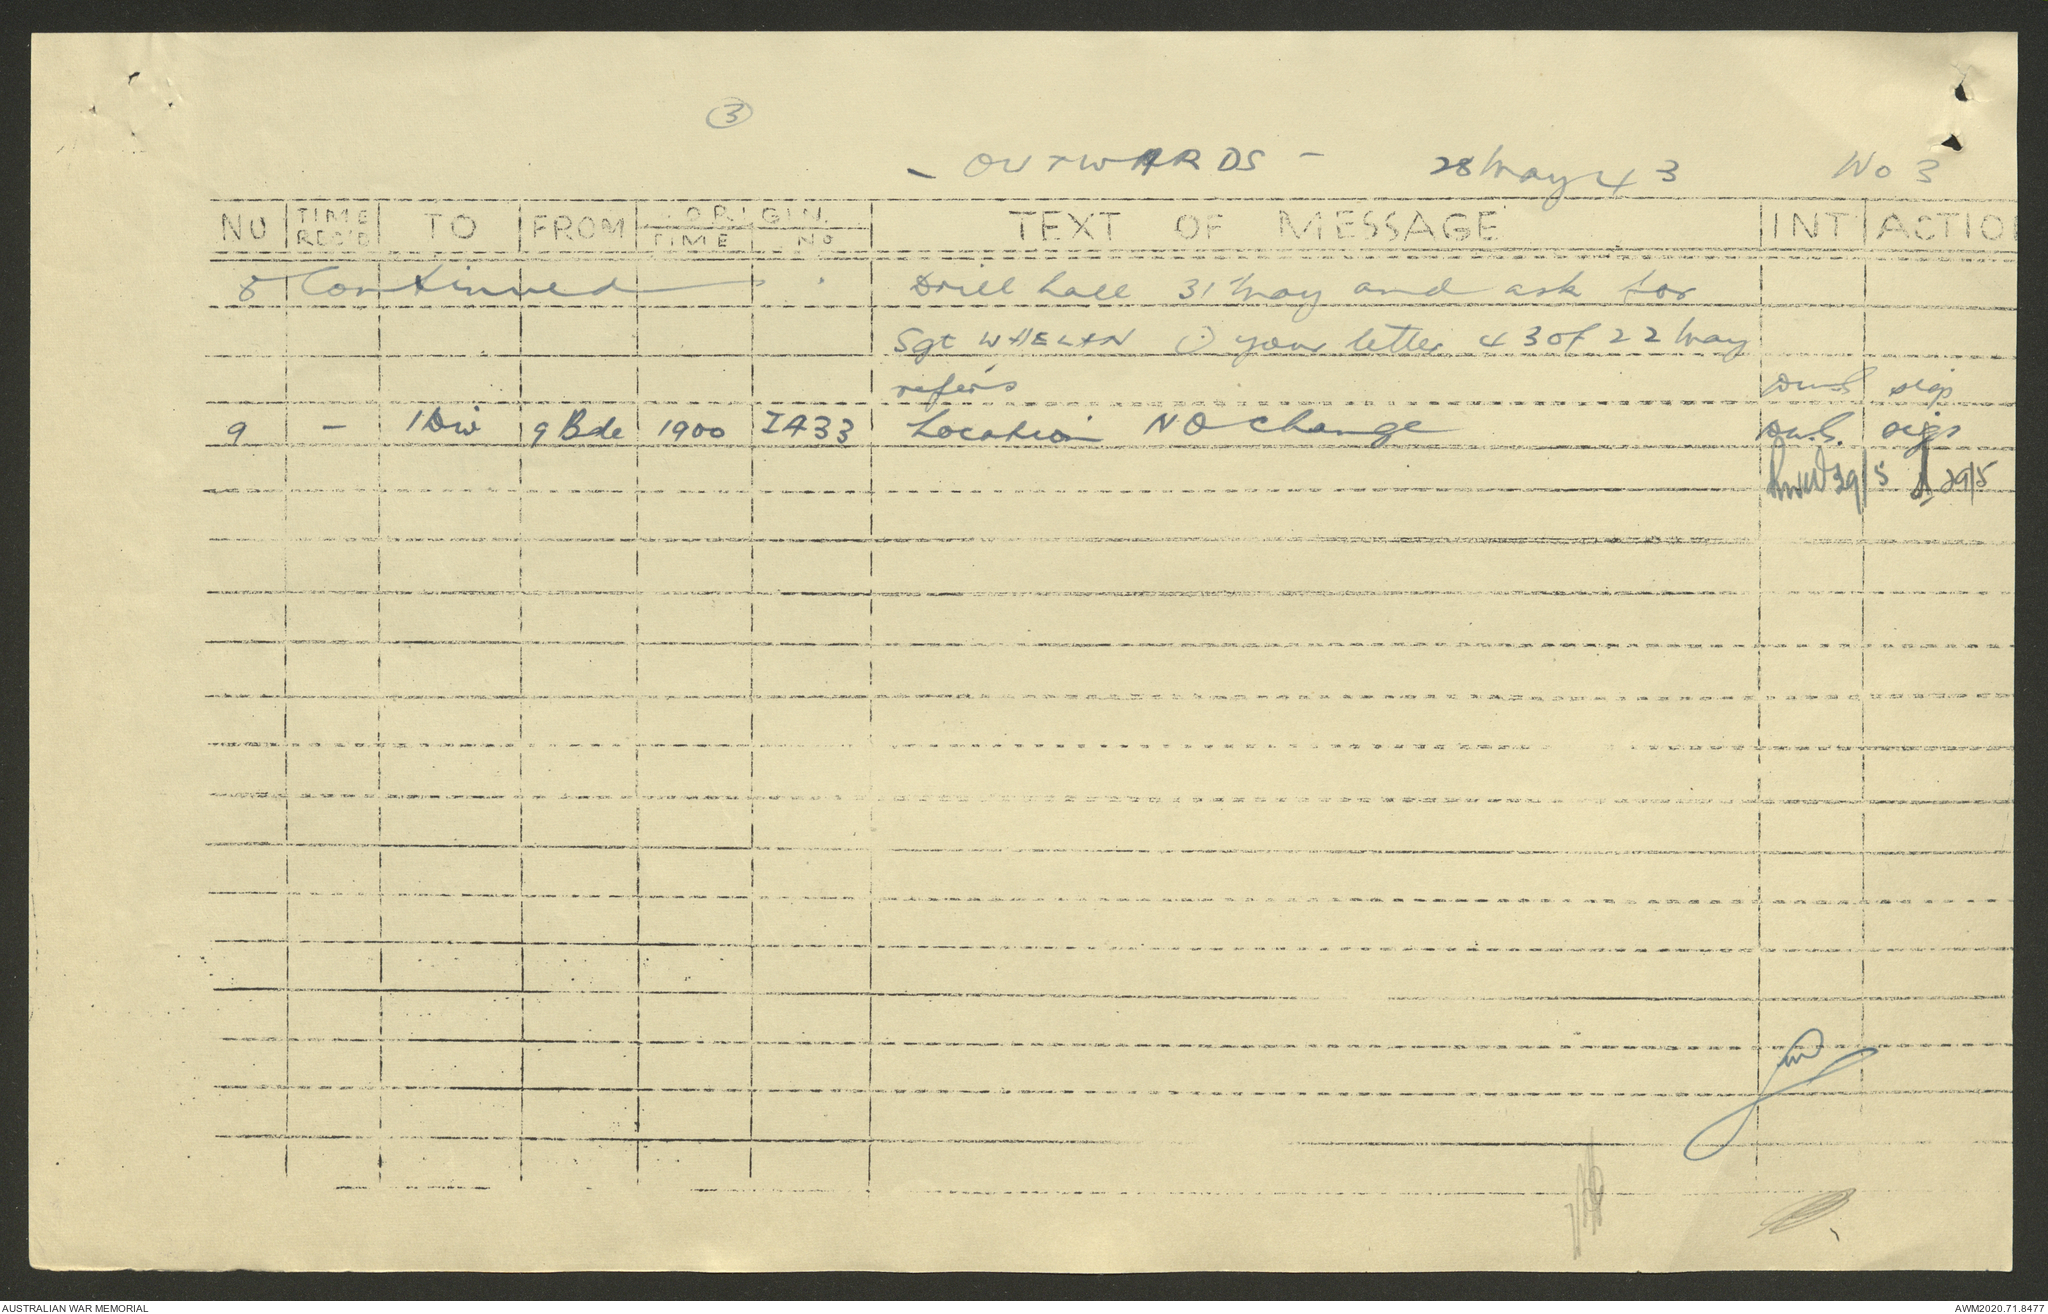 3
- OUTWARDS - 28 May 43 No 3
NU TIME REC'D TO FROM ORIGIN TIME NO TEXT OF MESSAGE INT ACTION
8 Continued Drill hall 31 May and ask for
Sgt WHELAN (:) your letter 43 of 22 May
refers sigs
9 - 1 Div 9 Bde 1900 IA33 Location NO change sigs
29/5 29/5
AUSTRALIAN WAR MEMORIAL AWM2020.71.8477